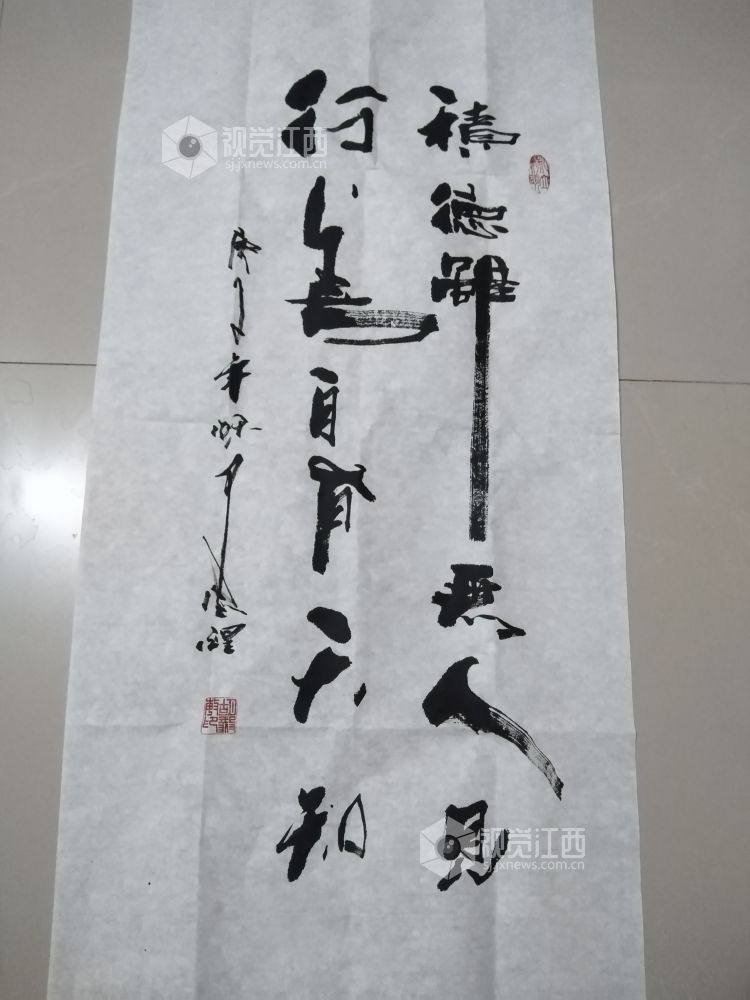 積德雖無人見
行善自有天知
庚子年秋月
视觉江西
sjjxnews.com.cn
视觉江西
sjjxnews.com.cn